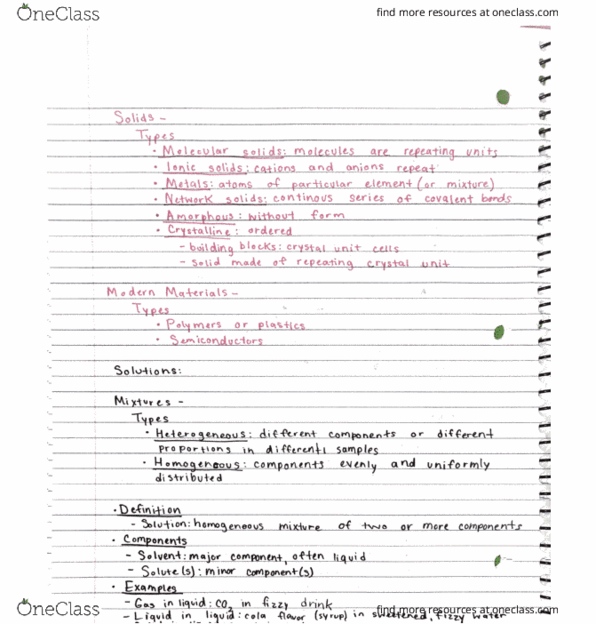 OneClass
find more resources at oneclass.com
Solids -
Types
• Molecular solids: molecules are repeating units
• Ionic solids: cations and anions repeat
• Metals: atoms of particular element (or mixture)
• Network solids: continous series of covalent bonds
• Amorphous: without form
• Crystalline: ordered
- building blocks: crystal unit cells
- solid made of repeating crystal unit
Modern Materials -
Types
• Polymers or plastics
• Semiconductors
Solutions:
Mixtures -
Types
• Heterogeneous: different components or different
proportions in differenti samples
• Homogeneous: components evenly and uniformly
distributed
• Definition
- Solution: homogeneous mixture of two or more components
• Components
- Solvent: major component, often liquid
- Solute(s): minor component(s)
• Examples
- Gas in liquid: CO₂ in fizzy drink
- Liquid in liquid: cola flavor (syrup) in sweetened, fizzy water
OneClass
find more resources at oneclass.com